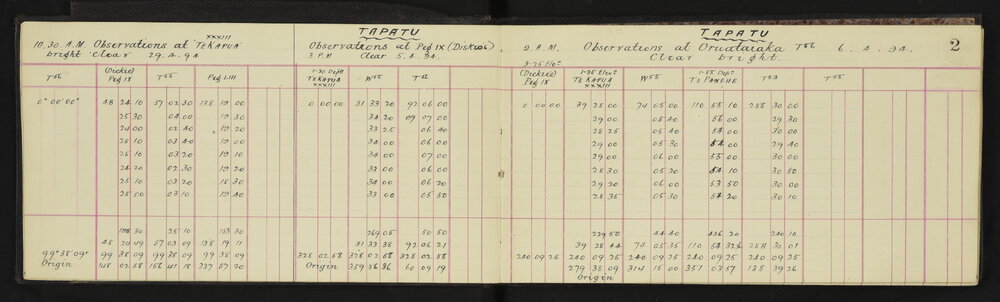 XXXIII
10.30 A.M. Observations at "TE KAPUA"
bright Clear 29.4.94
TAPATU
Observations at Peg IX (Dickie's)
3 P.M Clear 5.4.94.
TAPATU
9 A.M. Observations at Oruataiaka T56 6.4.94.
Clear bright.
2
T56 (Dickie) Peg IX T55 Peg LIII
1-30 Dep? TE KAPUA XXXIII W55 T56
3-25 Elev? (Dickie) Peg IX 1-35 Elev? TE KAPUA XXXIII W55 1-55 Dep? TE PANEHE T54 T55
0° 00' 00" 48 24 10 57 02 30 138 19 00 0 00 00 31 33 20 92 06 00 0 00 00 39 28 00 74 05 00 110 55 10 258 30 00
25 30 04 00 19 30 34 20 09 07 00 29 00 05 40 56 00 29 30
24 00 02 40 19 20 33 25 06 40 28 25 06 40 54 00 30 00
25 10 03 40 19 00 34 00 06 00 29 00 05 30 54 00 29 40
25 10 03 20 19 10 34 00 07 00 29 00 06 00 55 00 30 00
24 20 02 30 19 20 33 00 06 00 28 30 05 20 54 10 30 50
25 10 03 20 18 30 34 00 06 20 29 20 06 00 53 50 30 00
25 00 03 10 19 40 33 00 05 50 28 35 05 30 54 20 30 10
198 30 25 10 153 30 269 05 50 50 229 50 44 40 436 20 240 10
48 24 09 57 03 09 138 19 11 31 33 38 92 06 21 39 28 44 74 05 35 110 54 32½ 258 30 01
99° 38' 09" 99 38 09 99 38 09 99 38 09 328 02 58 328 02 58 328 02 58 240 09 25 240 09 25 240 09 25 240 09 25 240 09 25
Origin 148 02 58 156 41 18 237 57 20 Origin 359 36 36 60 09 19 279 38 09 314 15 00 351 03 57 138 39 26
Origin